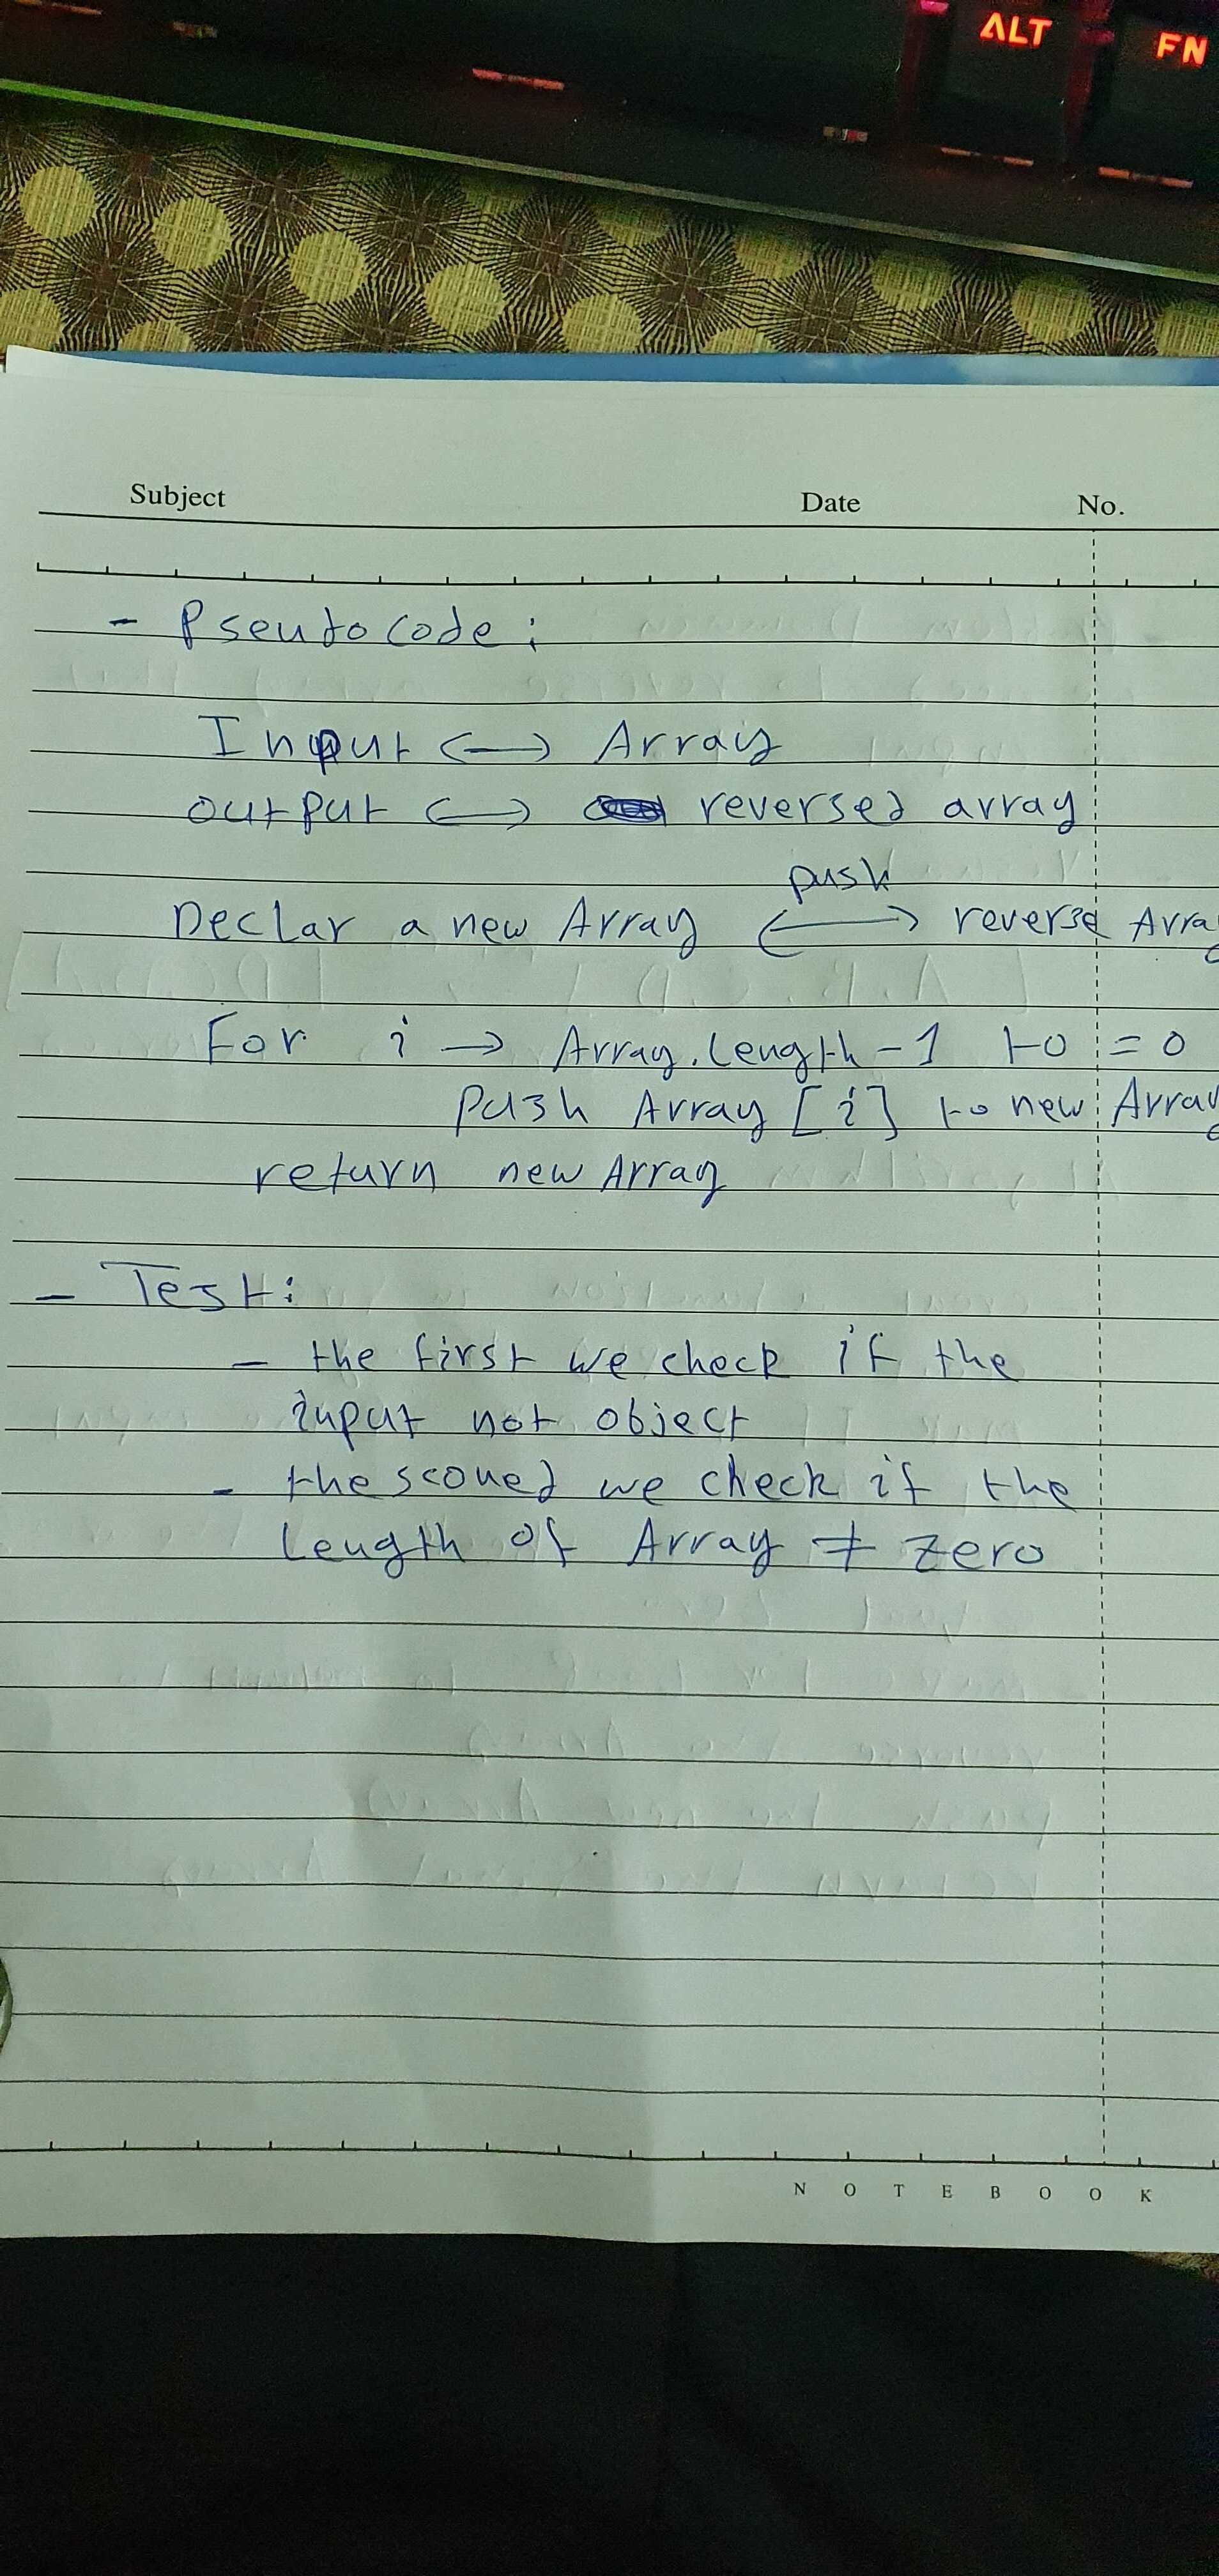 ALT FN
Subject Date No.
- Pseuto code :
Input <-> Array
output <-> reversed array
push
Declar a new Array <-> reverse Array
For i -> Array.length-1 to = 0
push Array [i] to new Array
return new Array
- Test:
- the first we check if the
input not object
- the scoued we check if the
length of Array ≠ zero
N O T E B O O K